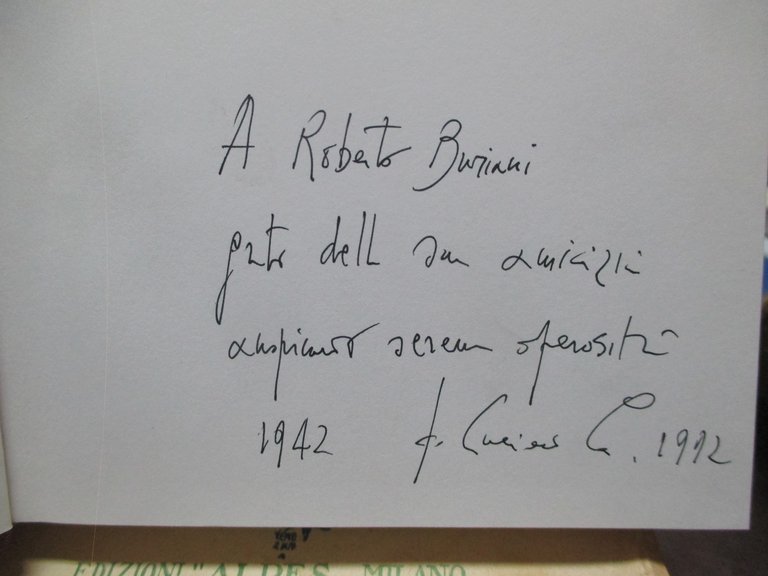 A Roberto Buriani
grato della sua amicizia
auspicando serena operosità
1942 1992
EDIZIONI "ALPES" MILANO